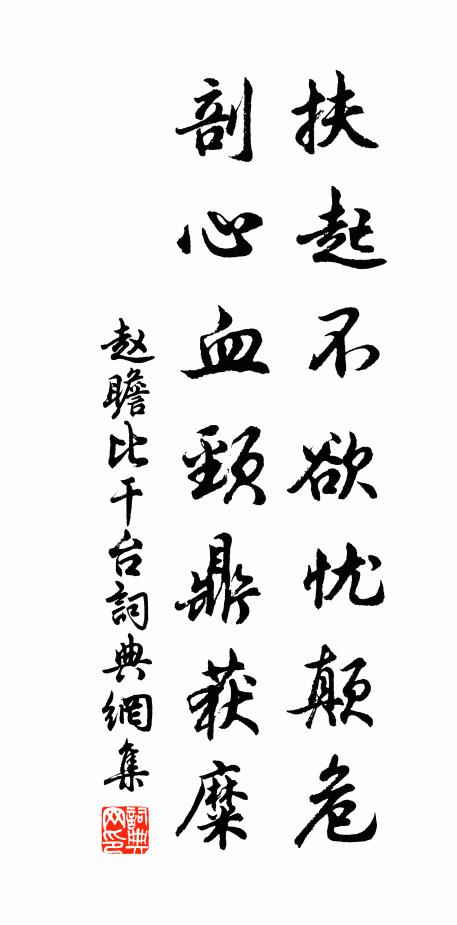 扶起不欲忧颠危
剖心血颈鼎获糜
赵瞻比干台詞典網集
詞典
网印